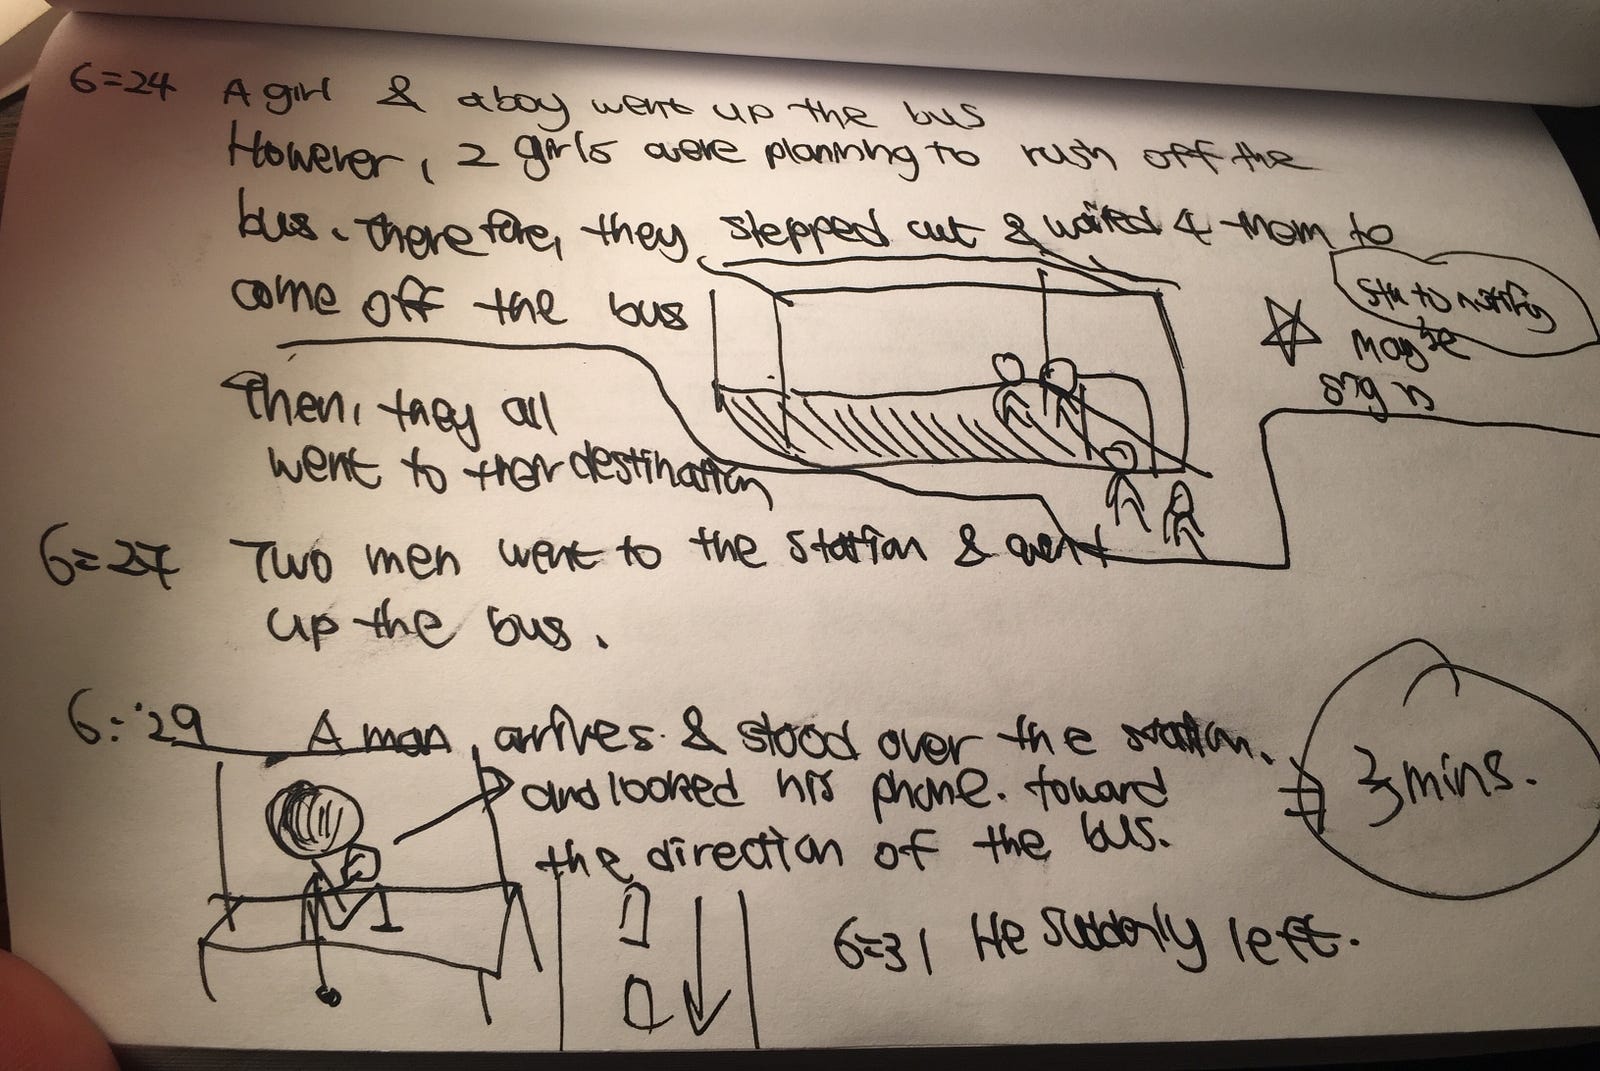 6:24 A girl & a boy went up the bus
However, 2 girls were planning to rush off the
bus. Therefore, they stepped out & waited 4 them to
come off the bus
to notify
maybe
sign
Then, they all
went to their destination
6:27 Two men went to the station & went
up the bus.
6:29 A man, arrives & stood over the station.
and looked his phone. toward
the direction of the bus.
3 mins.
6:31 He suddenly left.